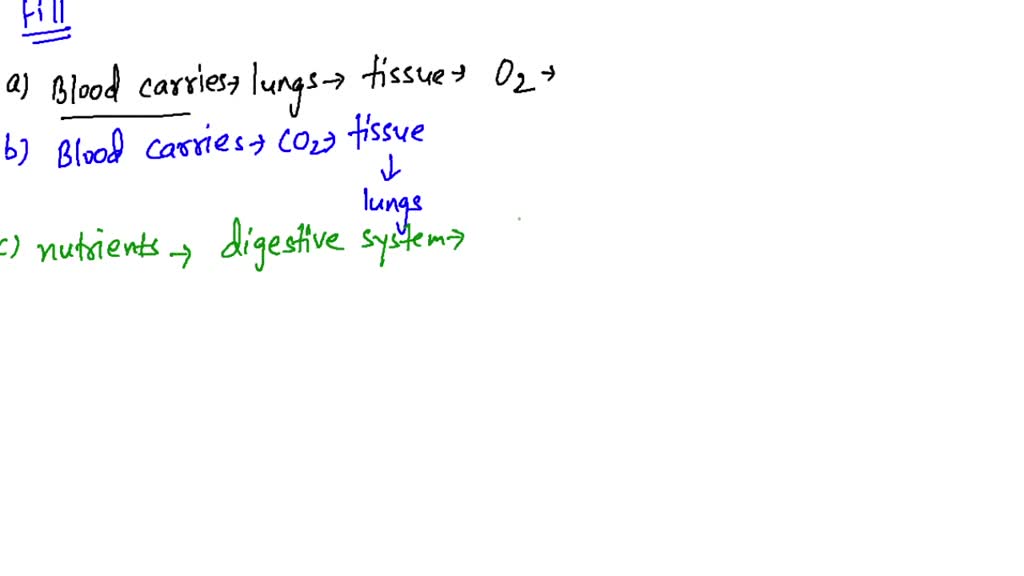 Fill
a) Blood carries→ lungs → tissue → O2 →
b) Blood carries → CO2 → tissue
↓
lungs
c) nutrients → digestive system →